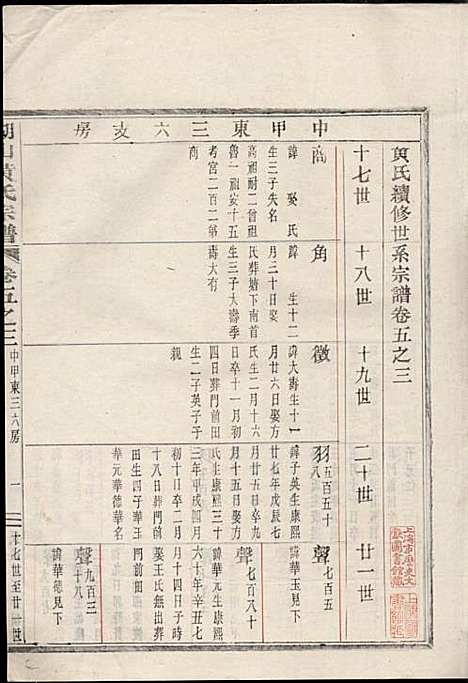 黃氏續修世系宗譜卷五之三
十七世
十八世
十九世
二十世
廿一世
中甲東三六支房
商
諱 娶 氏
生三子失名
高祖耐二曾祖
魯一祖安十五
考宮二百二第
商
角
諱 生十二
月三十日娶
氏葬塘下南
生三子大壽季
壽大有
徵
諱大壽生十一
月廿六日娶方
氏生二月十六
日卒十一月初
四日葬門前田
生二子英子于
親
羽五百五十
八
諱子英生康熙
廿七年戊辰七
月廿五日辛九
月十五日娶方
氏生康熙三十
三年甲戌四月
初十日卒二月
十八日葬門前
田生四子華玉
華元華德華名
聲七百五
諱華玉見下
聲七百八十
諱華元生康熙
六十年辛丑七
月十四日子時
娶王氏無出葬
門前田
聲九百三
十八
諱華德見下
黃氏宗譜
卷五之三
中甲東三六房
一
十七世至廿一世
上海市歷史文
獻圖書館藏